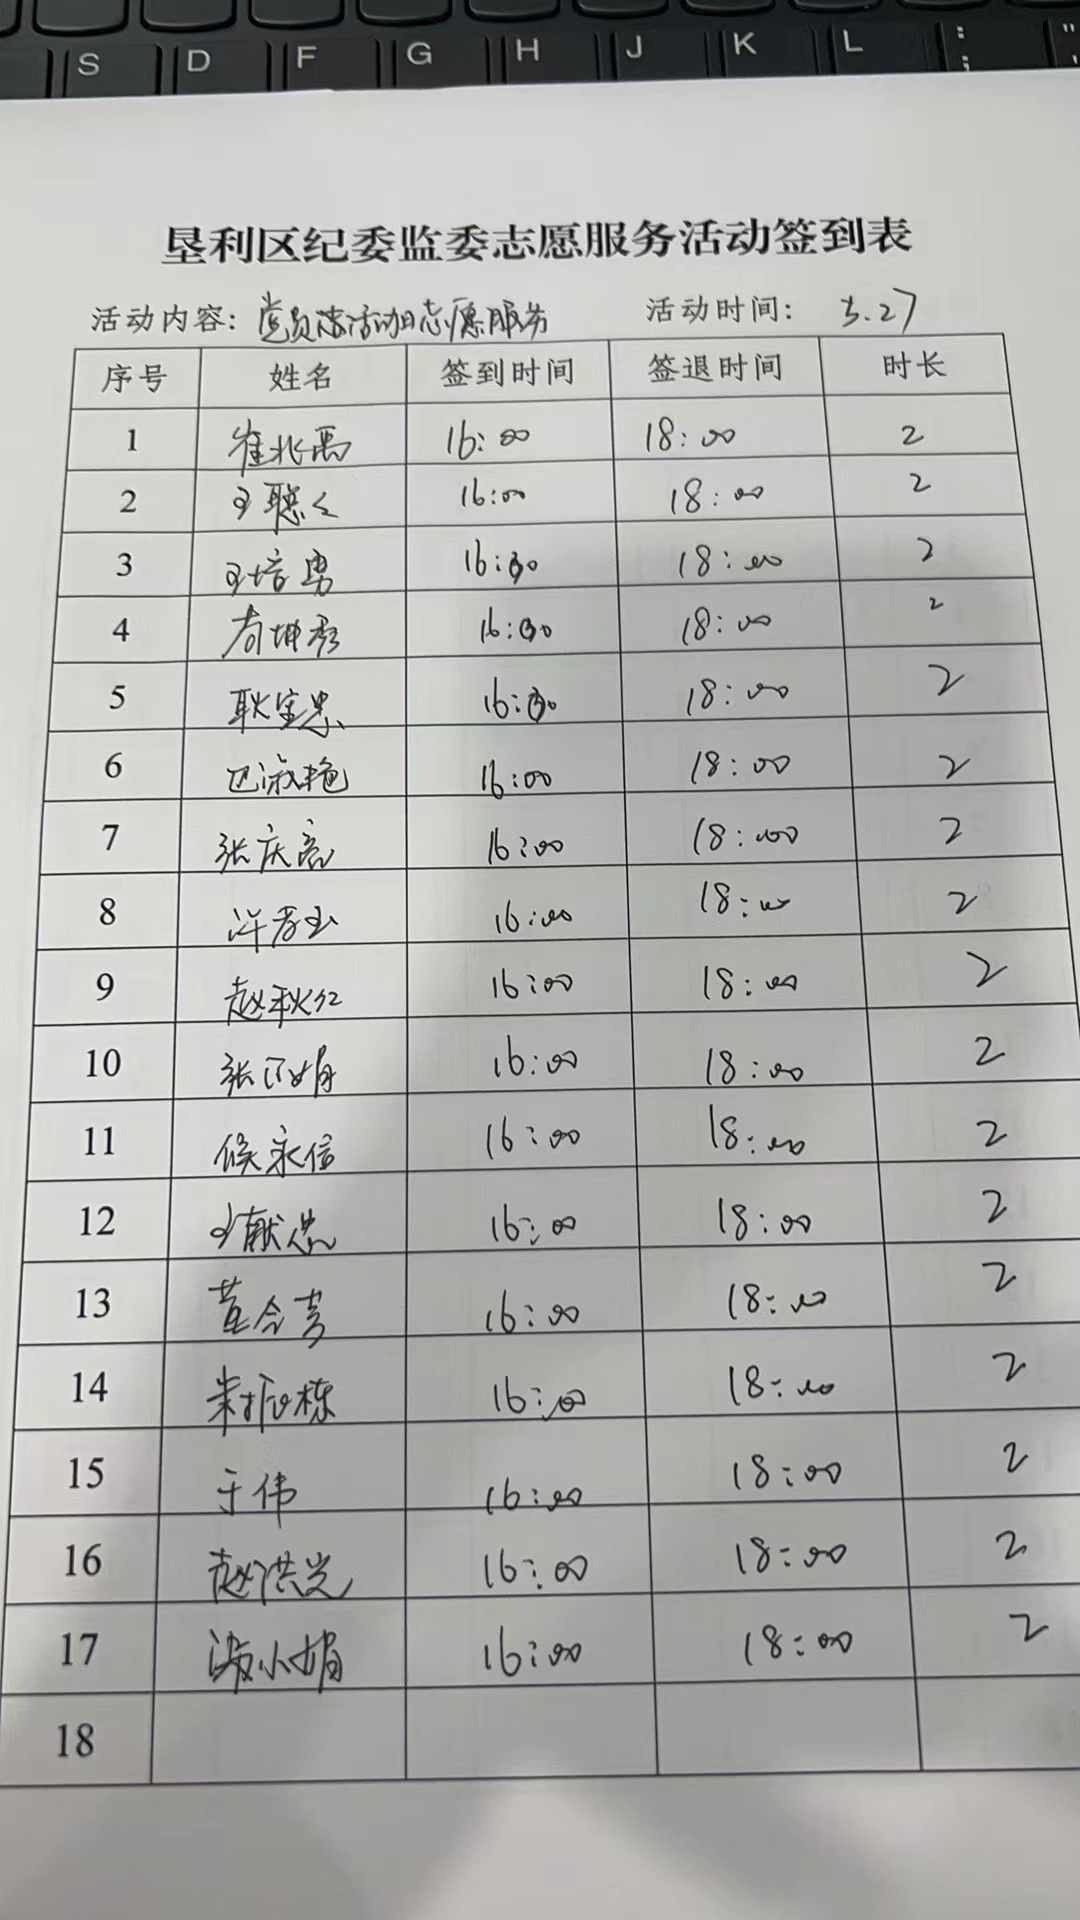 S D F G H J K L : ; " '
垦利区纪委监委志愿服务活动签到表
活动内容：党员活动日志愿服务 活动时间： 5.27
序号 姓名 签到时间 签退时间 时长
1 崔兆禹 16:00 18:00 2
2 王聪 16:00 18:00 2
3 王培勇 16:00 18:00 2
4 坤 16:00 18:00 2
5 耿宝忠 16:00 18:00 2
6 淑艳 16:00 18:00 2
7 张庆亮 16:00 18:00 2
8 16:00 18:00 2
9 赵秋红 16:00 18:00 2
10 张 16:00 18:00 2
11 侯永信 16:00 18:00 2
12 王献忠 16:00 18:00 2
13 董会芳 16:00 18:00 2
14 朱振栋 16:00 18:00 2
15 于伟 16:00 18:00 2
16 赵洪光 16:00 18:00 2
17 小娟 16:00 18:00 2
18